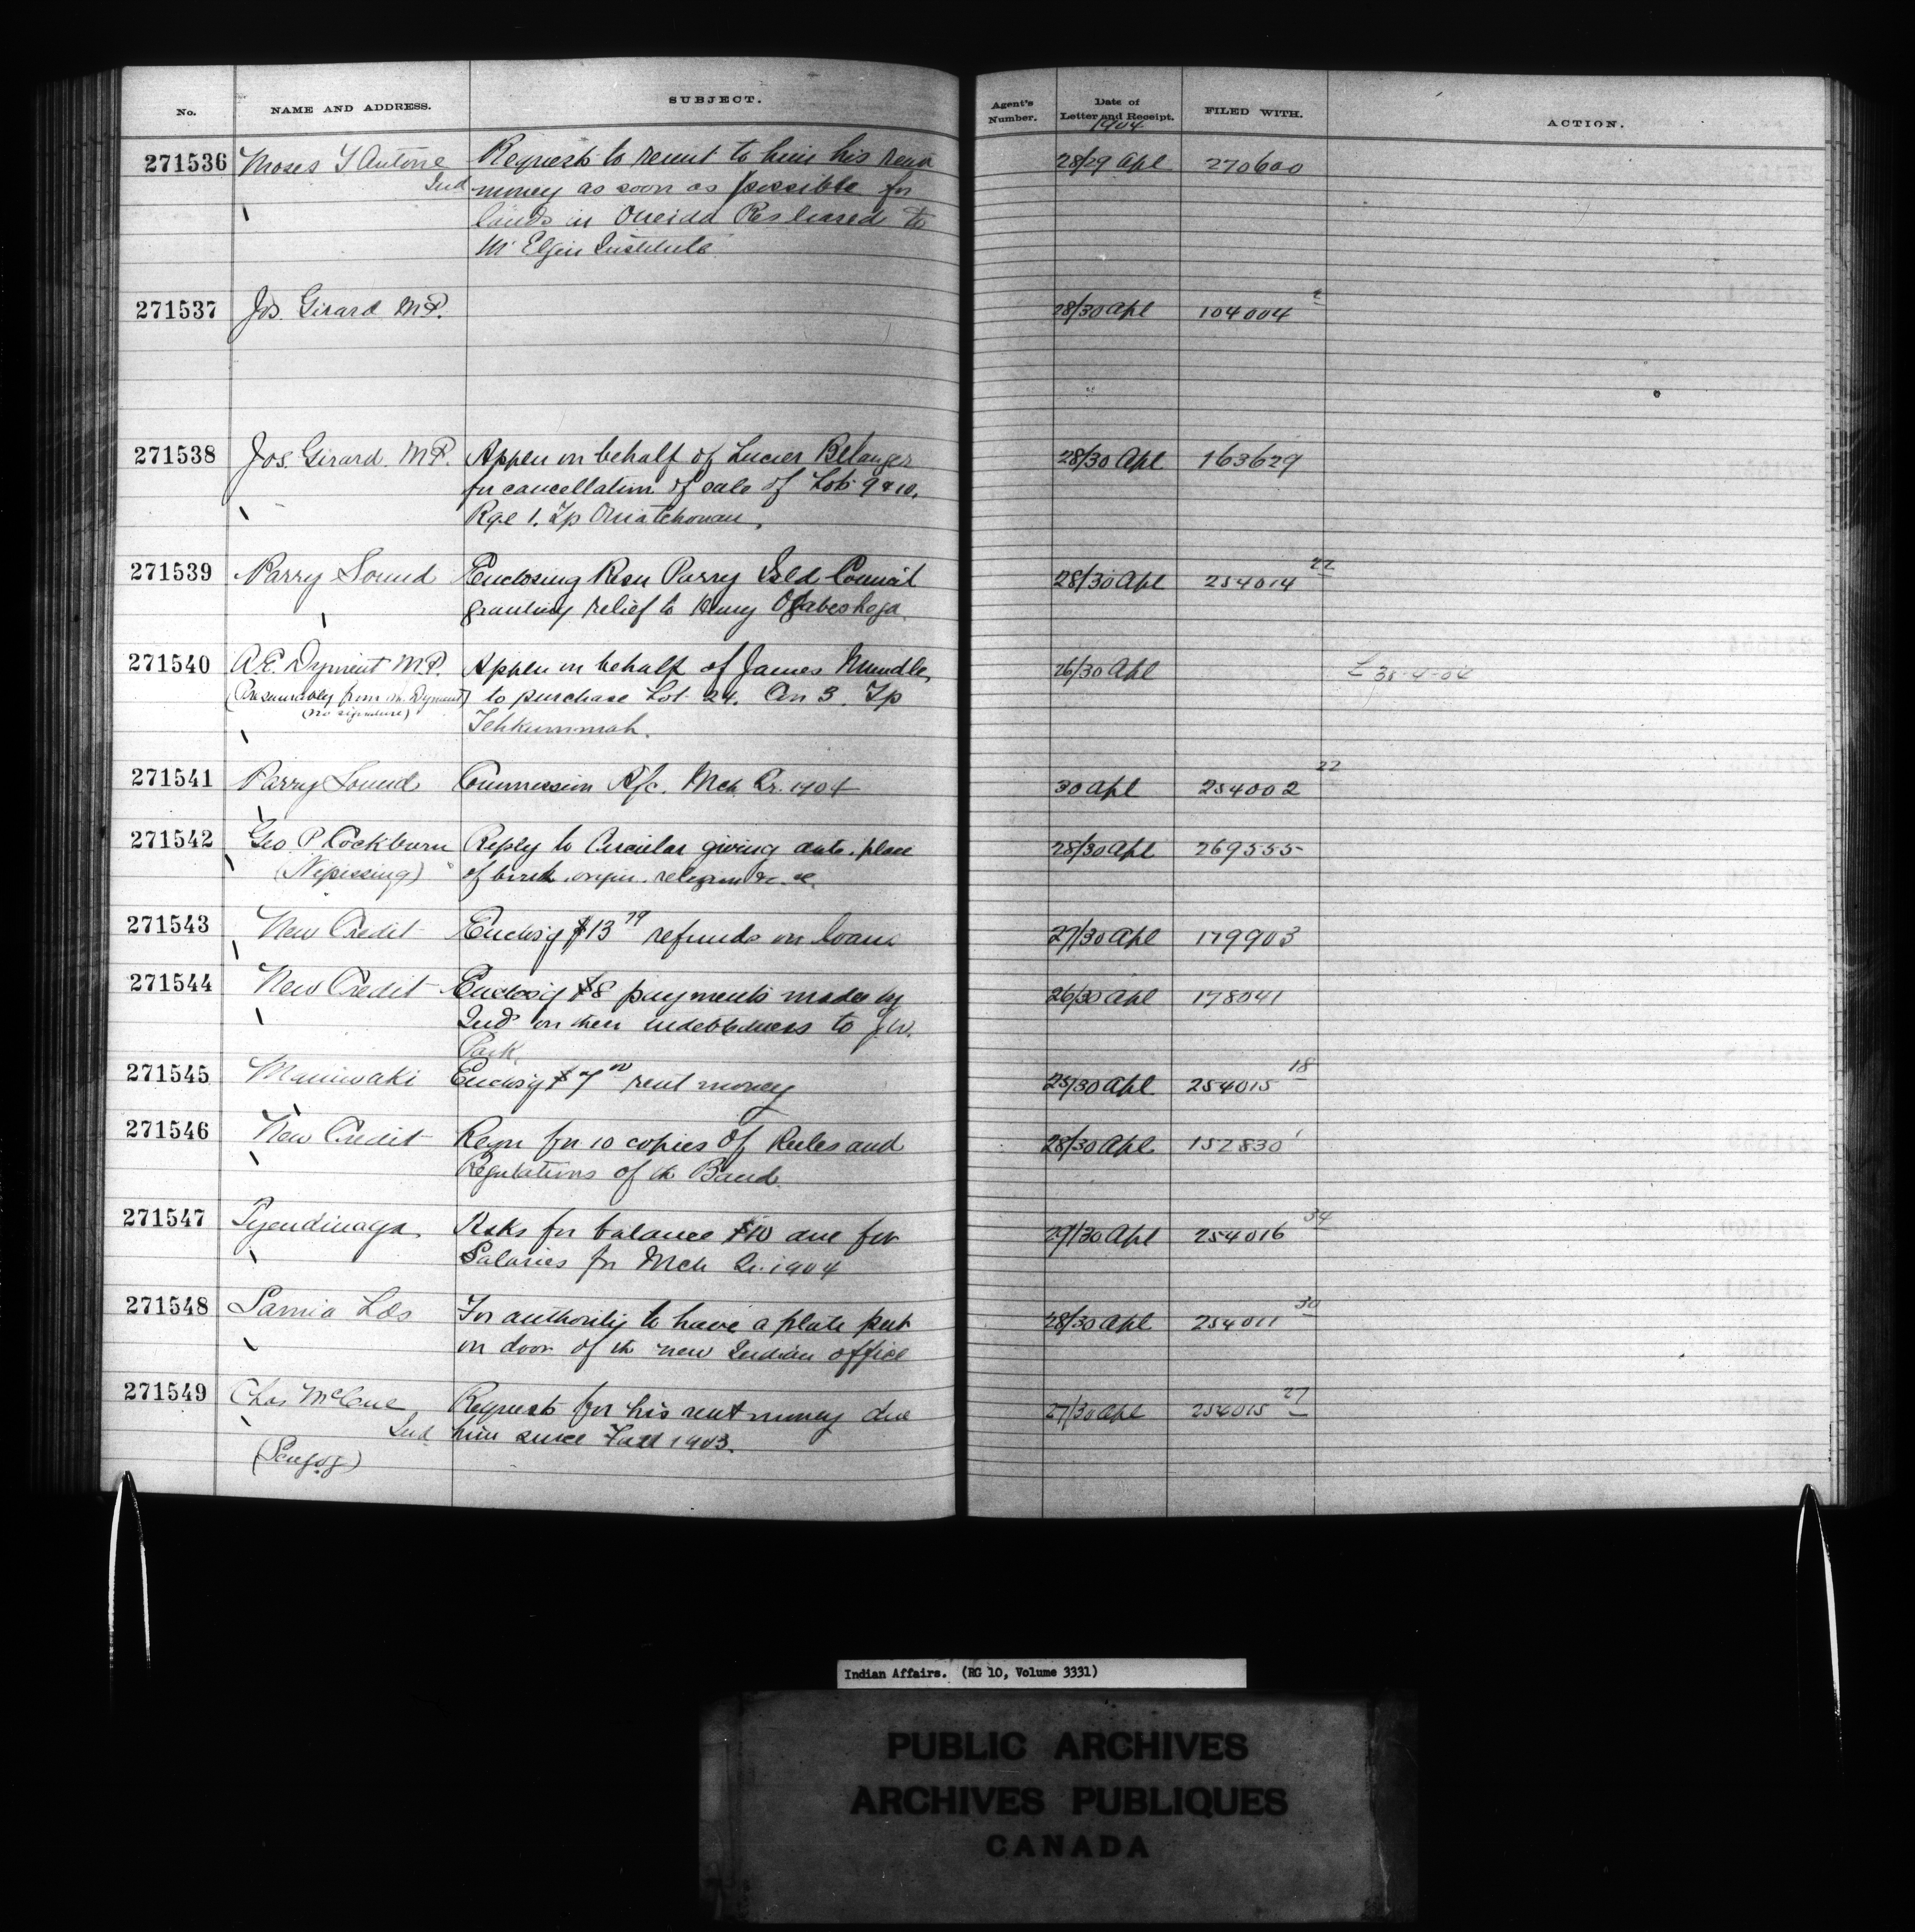 No. NAME AND ADDRESS. SUBJECT. Agent's Number. Date of Letter and Receipt. FILED WITH. ACTION.
1904
271536 Moses Antone Requests to remit to him his rent 28/29 Apl 270600
Ind money as soon as possible for
lands in Oneida Res leased to
Mt Elgin Institute
271537 Jos. Girard M.P. 28/30 Apl 104004
271538 Jos. Girard. M.P. Appln on behalf of Lucien Belanger 28/30 Apl 163629
for cancellation of sale of Lots 9 & 10,
Rge 1. Tp Ouiatchouan.
271539 Parry Sound Enclosing Resn Parry Isld Council 28/30 Apl 254014 22
granting relief to Henry
271540 A.E. Dyment M.P. Appln on behalf of James 26/30 Apl L 30-4-04
(Presumably from Mr. Dyment) to purchase Lot 24. Con 3. Tp
(no signature)
Tehkummah.
271541 Parry Sound Commission A/c. Mch Qr. 1904 30 Apl 254002 22
271542 Geo P Cockburn Reply to Circular giving date, place 28/30 Apl 269555
(Nipissing) of birth, origin, religion &c. &c.
271543 New Credit Enclos'g $13 79 refunds on loans 27/30 Apl 179903
271544 New Credit Enclos'g $8 payments made by 26/30 Apl 178041
Inds on their indebtedness to J.W.
Park.
271545 Maniwaki Enclos'g $7 00 rent money 25/30 Apl 254015 18
271546 New Credit Reqn for 10 copies of Rules and 28/30 Apl 152830 1
Regulations of the Band.
271547 Tyendinaga Asks for balance $10 due for 29/30 Apl 254016 34
Salaries for Mch Qr. 1904
271548 Sarnia Lds For authority to have a plate put 28/30 Apl 254011 30
on door of the new Indian office
271549 Chas McCue Requests for his rent money due 27/30 Apl 254015 27
Ind. him since Fall 1903.
(Scugog)
Indian Affairs. (RG 10, Volume 3331)
PUBLIC ARCHIVES
ARCHIVES PUBLIQUES
CANADA